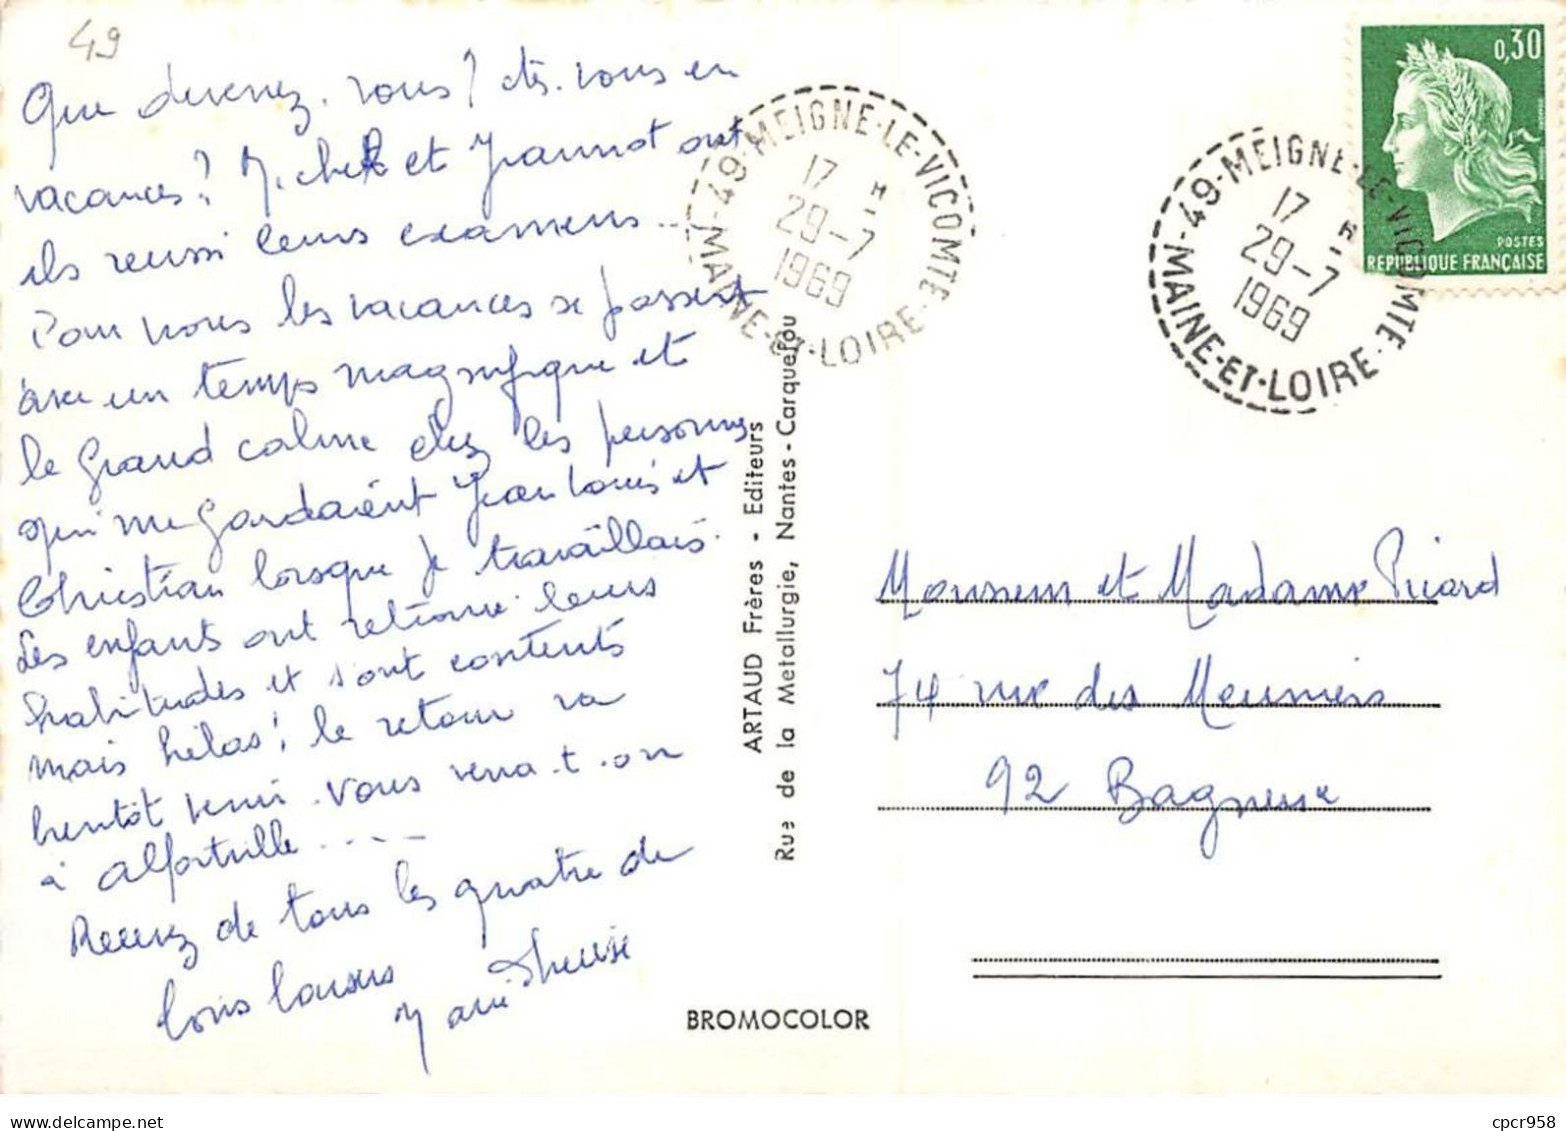 49
Que devenez-vous ? êtes-vous en
vacances ? Michel et Jeannot ont
ils reussi leurs examens ...
Pour nous les vacances se passent
avec un temps magnifique et
le grand calme chez les personnes
qui me gardaient Jean Louis et
Christian lorsque je travaillais.
Les enfants ont retrouvé leurs
habitudes et sont contents
mais hélas ! le retour va
bientôt venir. Vous verra-t-on
à Alfortville ....
Recevez de tous les quatre de
bons baisers
Marie Thérèse
ARTAUD Frères - Editeurs
Rue de la Metallurgie, Nantes - Carquefou
BROMOCOLOR
49-MEIGNE-LE-VICOMTE
17 H
29-7
1969
MAINE-ET-LOIRE
49-MEIGNE-LE-VICOMTE
17 H
29-7
1969
MAINE-ET-LOIRE
0,30
POSTES
REPUBLIQUE FRANÇAISE
Monsieur et Madame Picard
74 rue des Meuniers
92 Bagneux
www.delcampe.net
cpcr958